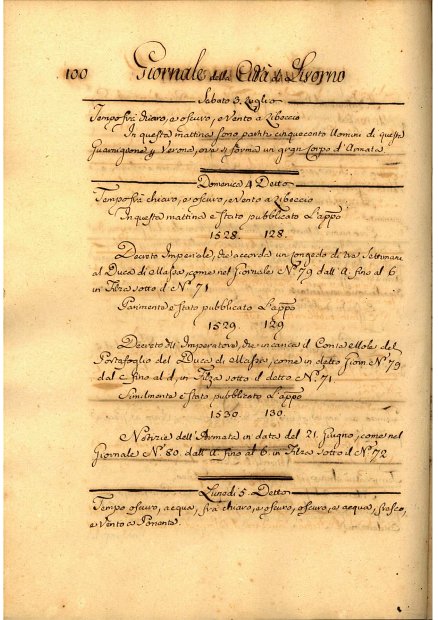 100 Giornale della Città di Livorno
Sabato 3. Luglio
Tempo frà chiaro, e oscuro, e vento a Libeccio
In questa mattina sono partiti cinquecento Uomini di questa
Guarnigione p Verona, ove si forma un gran Corpo d'Armata
Domenica 4 Detto
Tempo frà chiaro, e oscuro, e vento a Libeccio
In questa mattina è stato pubblicato L'app.o
1528. 128.
Decreto Imperiale, che accorda un congedo di tre Settimane
al Duca di Massa, come nel Giornale N.o 79 dall' a. fino al 6
in Filza sotto il N.o 71
Parimente è stato pubblicato L'app.o
1529. 129
Decreto dell' Imperatore, che incarica il Conte Mole del
Portafoglio del Duca di Massa, come in detto Giorn N.o 79
dal c. fino al d, in Filza sotto il detto N.o 71
Similmente è stato pubblicato L'app.o
1530. 130.
Notizie dell'Armata in data del 21. Giugno, come nel
Giornale N.o 80. dall' a. fino al 6. in Filza sotto il N.o 72
Lunedi 5. Detto
Tempo oscuro, acqua, frà chiaro, e oscuro, oscuro, e acqua, fresco,
e vento a Ponente.